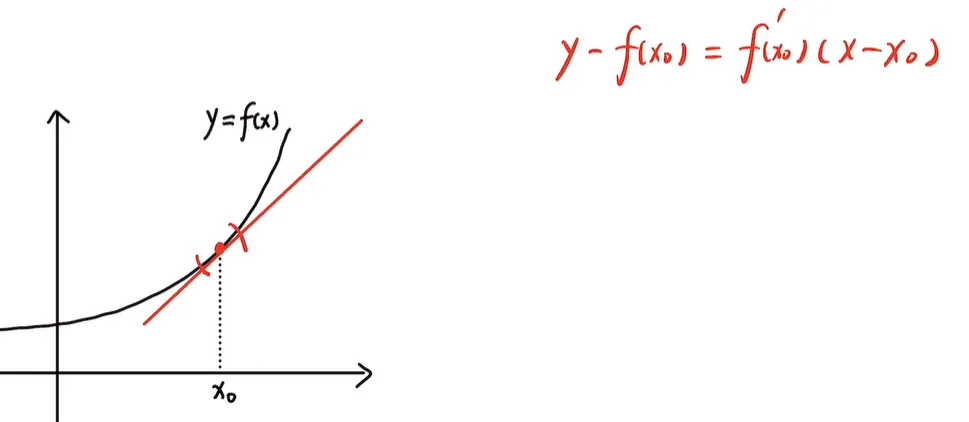 y - f(x₀) = f'(x₀)(x-x₀)
y=f(x)
x₀